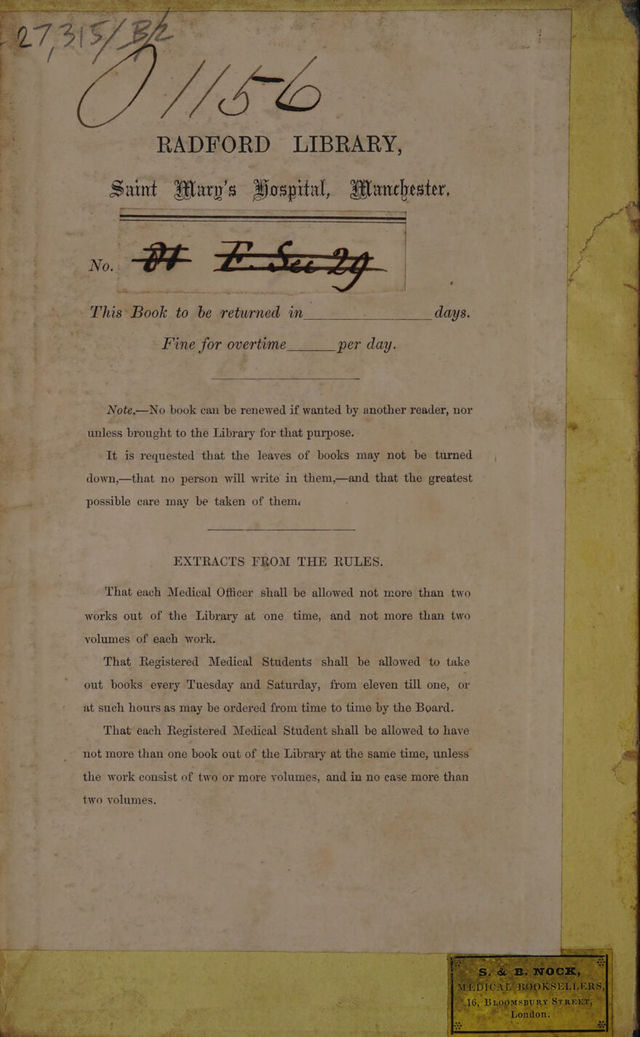 27,315/B/2
1156
RADFORD LIBRARY,
Saint Mary's Hospital, Manchester.
No.
This Book to be returned in____________days.
Fine for overtime_____per day.
Note.—No book can be renewed if wanted by another reader, nor
unless brought to the Library for that purpose.
It is requested that the leaves of books may not be turned
down,—that no person will write in them,—and that the greatest
possible care may be taken of them.
EXTRACTS FROM THE RULES.
That each Medical Officer shall be allowed not more than two
works out of the Library at one time, and not more than two
volumes of each work.
That Registered Medical Students shall be allowed to take
out books every Tuesday and Saturday, from eleven till one, or
at such hours as may be ordered from time to time by the Board.
That each Registered Medical Student shall be allowed to have
not more than one book out of the Library at the same time, unless
the work consist of two or more volumes, and in no case more than
two volumes.
S. & B. NOCK,
MEDICAL BOOKSELLERS,
16, BLOOMSBURY STREET,
London.